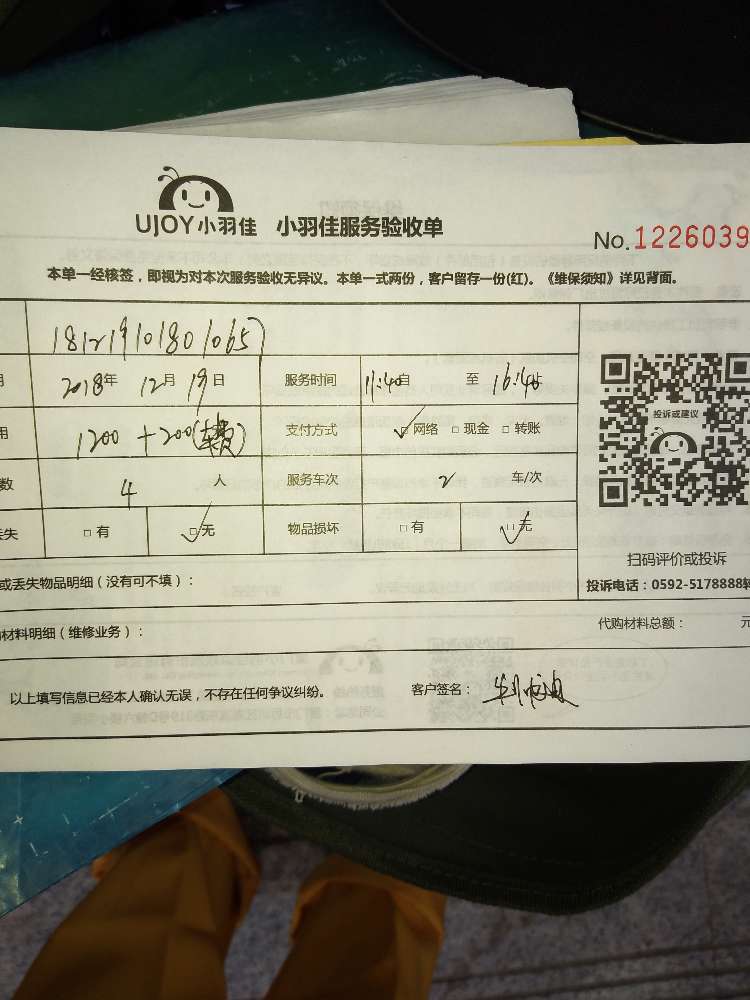 UJOY小羽佳 小羽佳服务验收单
No.1226039
本单一经核签，即视为对本次服务验收无异议。本单一式两份，客户留存一份(红)。《维保须知》详见背面。
1812191018010657
2018年 12月 19日 服务时间 11:40自 至 16:40止
用 1200 + 200(车费) 支付方式 ☑网络 □现金 □转账
数 4 人 服务车次 2 车/次
丢失 □有 ☑无 物品损坏 □有 ☑无
投诉或建议
扫码评价或投诉
投诉电话：0592-5178888转
或丢失物品明细（没有可不填）：
材料明细（维修业务）： 代购材料总额： 元
以上填写信息已经本人确认无误，不存在任何争议纠纷。 客户签名：